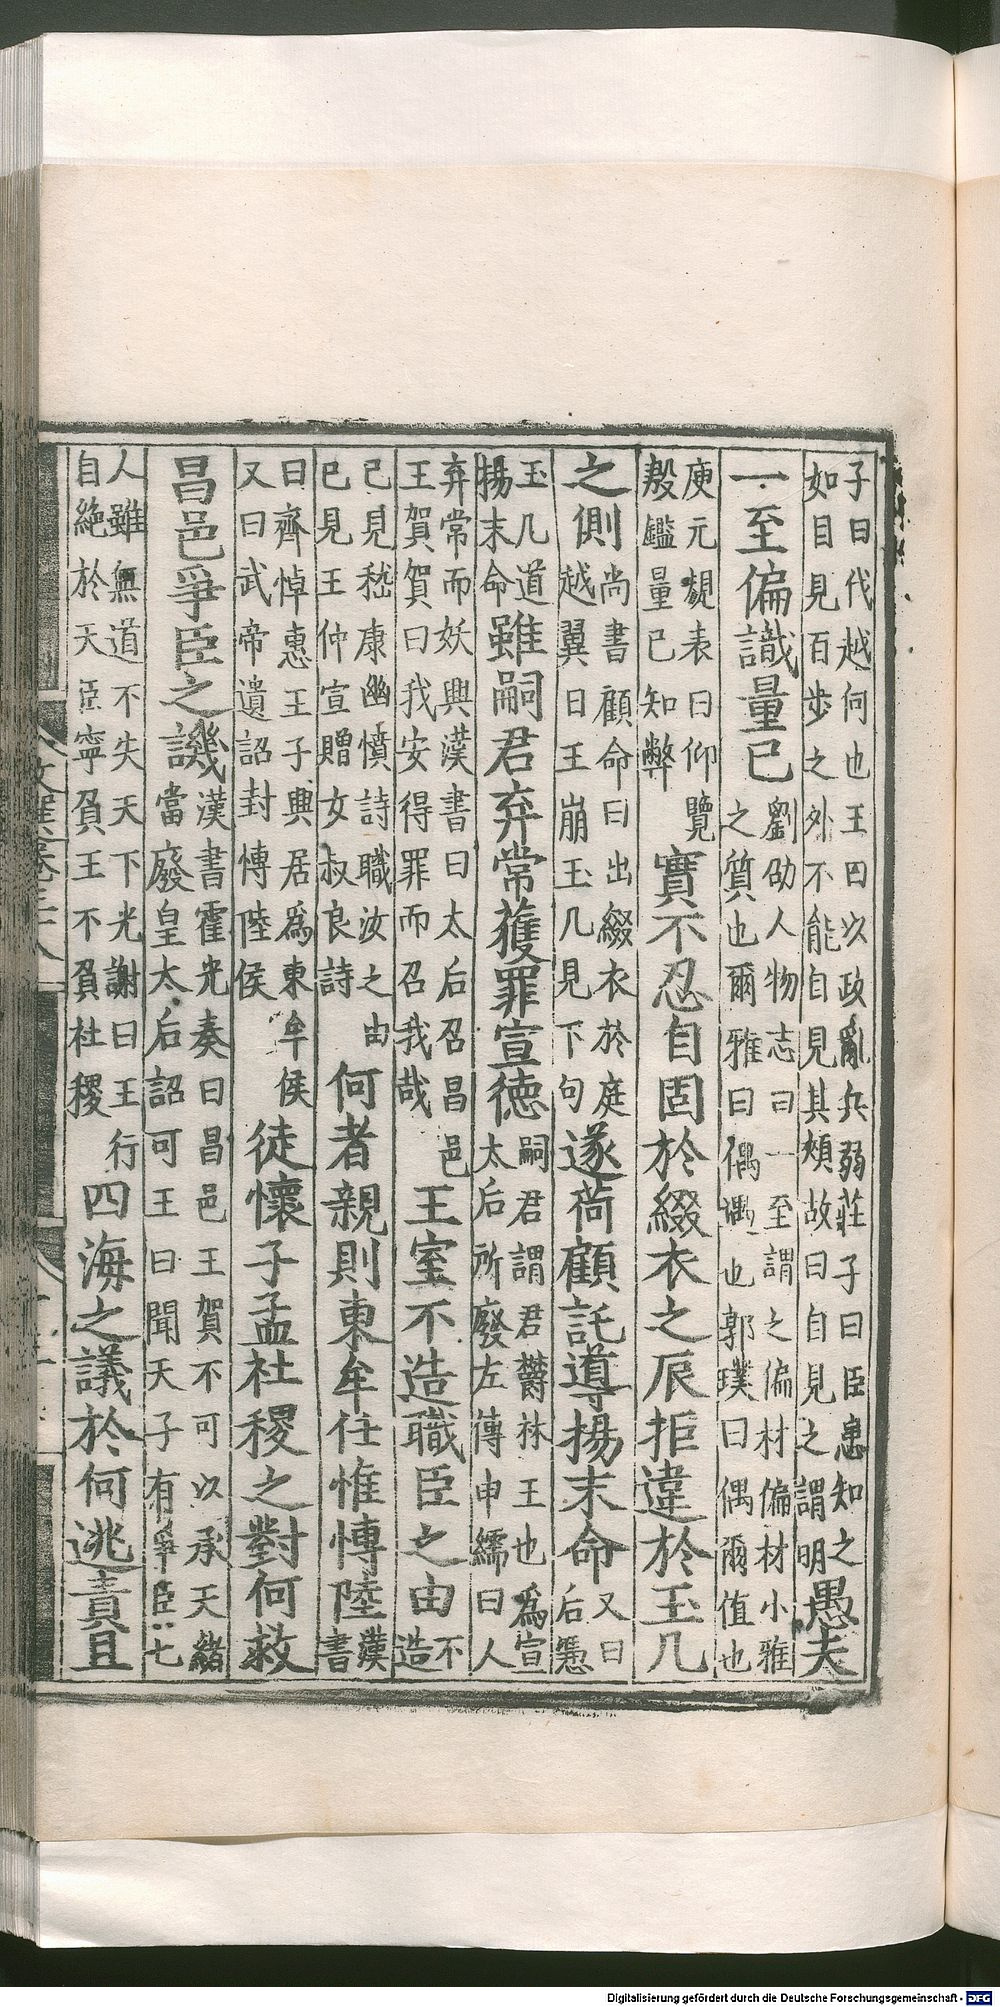 子曰代越何也王曰以政亂兵弱莊子曰臣患知之
如目見百步之外不能自見其頰故曰自見之謂明
愚夫
一至偏識量已
劉劭人物志曰一至謂之偏材偏材小雅
之質也爾雅曰偶遇也郭璞曰偶爾值也
庾元規表曰仰覽
殷鑑量已知弊
實不忍自固於綴衣之辰拒違於玉几
之側
尚書顧命曰出綴衣於庭
越翼日王崩玉几見下句
遂荷顧託導揚末命
又曰
后憑
玉几道
揚末命
雖嗣君弃常獲罪宣德
嗣君謂君欝林王也為宣
太后所廢左傳申繻曰人
弃常而妖興漢書曰太后召昌邑
王賀賀曰我安得罪而召我哉
王室不造職臣之由
不
造
已見嵇康幽憤詩職汝之由
已見王仲宣贈女叔良詩
何者親則東牟任惟博陸
漢
書
曰齊悼惠王子興居為東牟侯
又曰武帝遺詔封博陸侯
徒懷子孟社稷之對何救
昌邑爭臣之譏
漢書霍光奏曰昌邑王賀不可以承天緒
當廢皇太后詔可王曰聞天子有爭臣七
人雖無道不失天下光謝曰王行
自絕於天臣寧負王不負社稷
四海之議於何逃責且
Digitalisierung gefördert durch die Deutsche Forschungsgemeinschaft - DFG